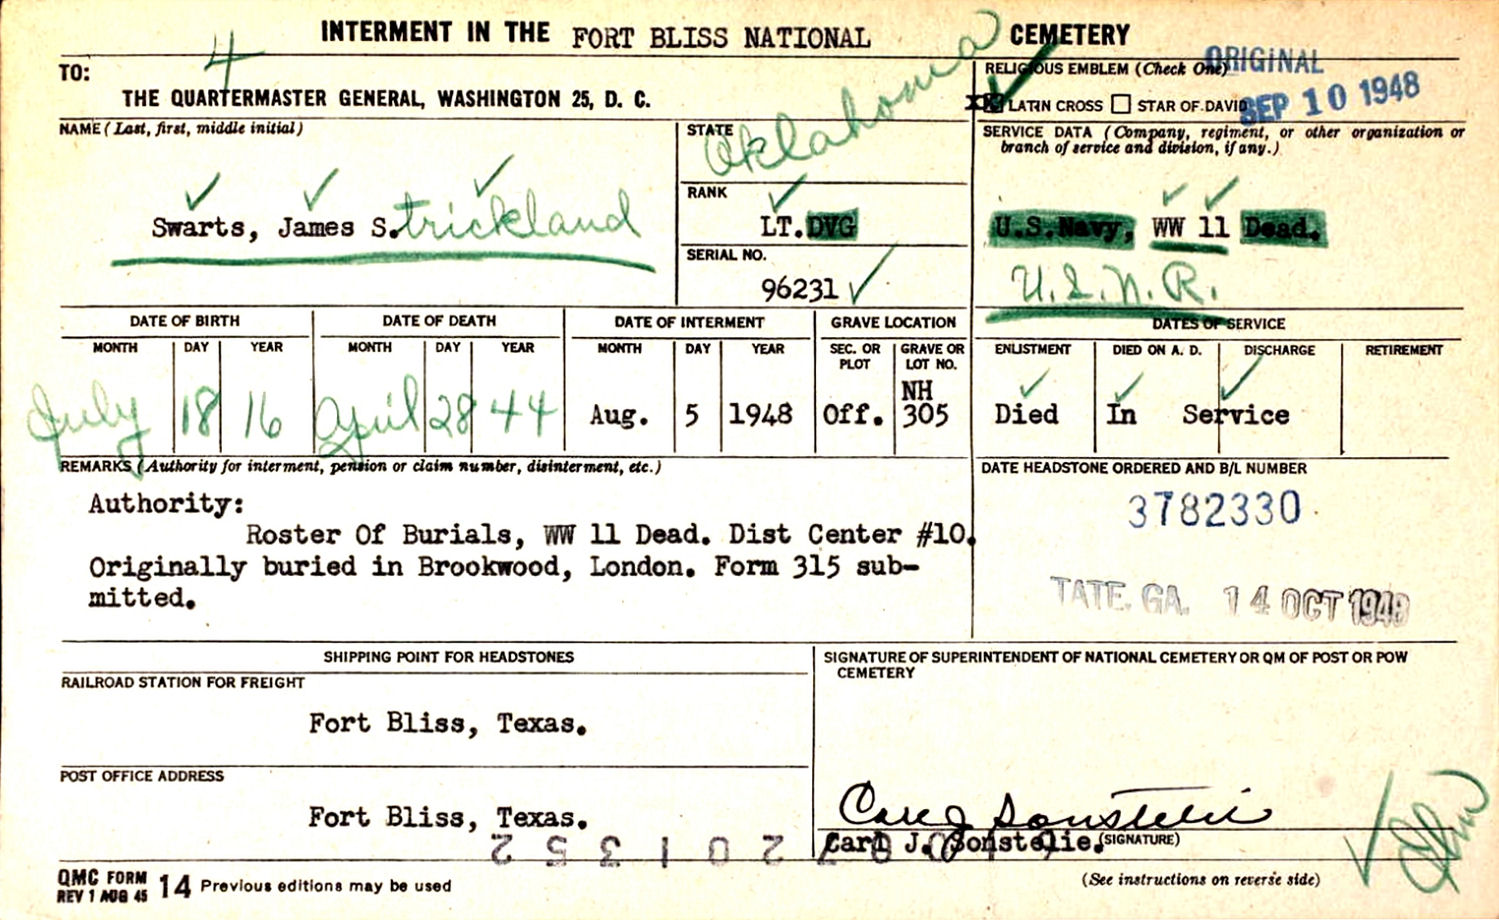 INTERMENT IN THE FORT BLISS NATIONAL CEMETERY
4
TO:
THE QUARTERMASTER GENERAL, WASHINGTON 25, D. C.
RELIGIOUS EMBLEM (Check One)
ORIGINAL
LATIN CROSS STAR OF DAVID
SEP 10 1948
NAME (Last, first, middle initial)
Swarts, James S.trickland
STATE
Oklahoma
RANK
LT. DVG
SERIAL NO.
96231
SERVICE DATA (Company, regiment, or other organization or
branch of service and division, if any.)
U.S.Navy, WW 11 Dead.
U.S.N.R.
DATE OF BIRTH
MONTH DAY YEAR
July 18 16
DATE OF DEATH
MONTH DAY YEAR
April 28 44
DATE OF INTERMENT
MONTH DAY YEAR
Aug. 5 1948
GRAVE LOCATION
SEC. OR PLOT
GRAVE OR LOT NO.
NH
Off. 305
DATES OF SERVICE
ENLISTMENT DIED ON A. D. DISCHARGE RETIREMENT
Died In Service
REMARKS (Authority for interment, pension or claim number, disinterment, etc.)
Authority:
Roster Of Burials, WW 11 Dead. Dist Center #10.
Originally buried in Brookwood, London. Form 315 sub-
mitted.
DATE HEADSTONE ORDERED AND B/L NUMBER
3782330
TATE. GA. 14 OCT 1948
SHIPPING POINT FOR HEADSTONES
RAILROAD STATION FOR FREIGHT
Fort Bliss, Texas.
POST OFFICE ADDRESS
Fort Bliss, Texas.
SIGNATURE OF SUPERINTENDENT OF NATIONAL CEMETERY OR QM OF POST OR POW
CEMETERY
Carl J Sonstelie
Carl J. Sonstelie. (SIGNATURE)
QMC FORM
REV 1 AUG 45 14 Previous editions may be used
(See instructions on reverse side)